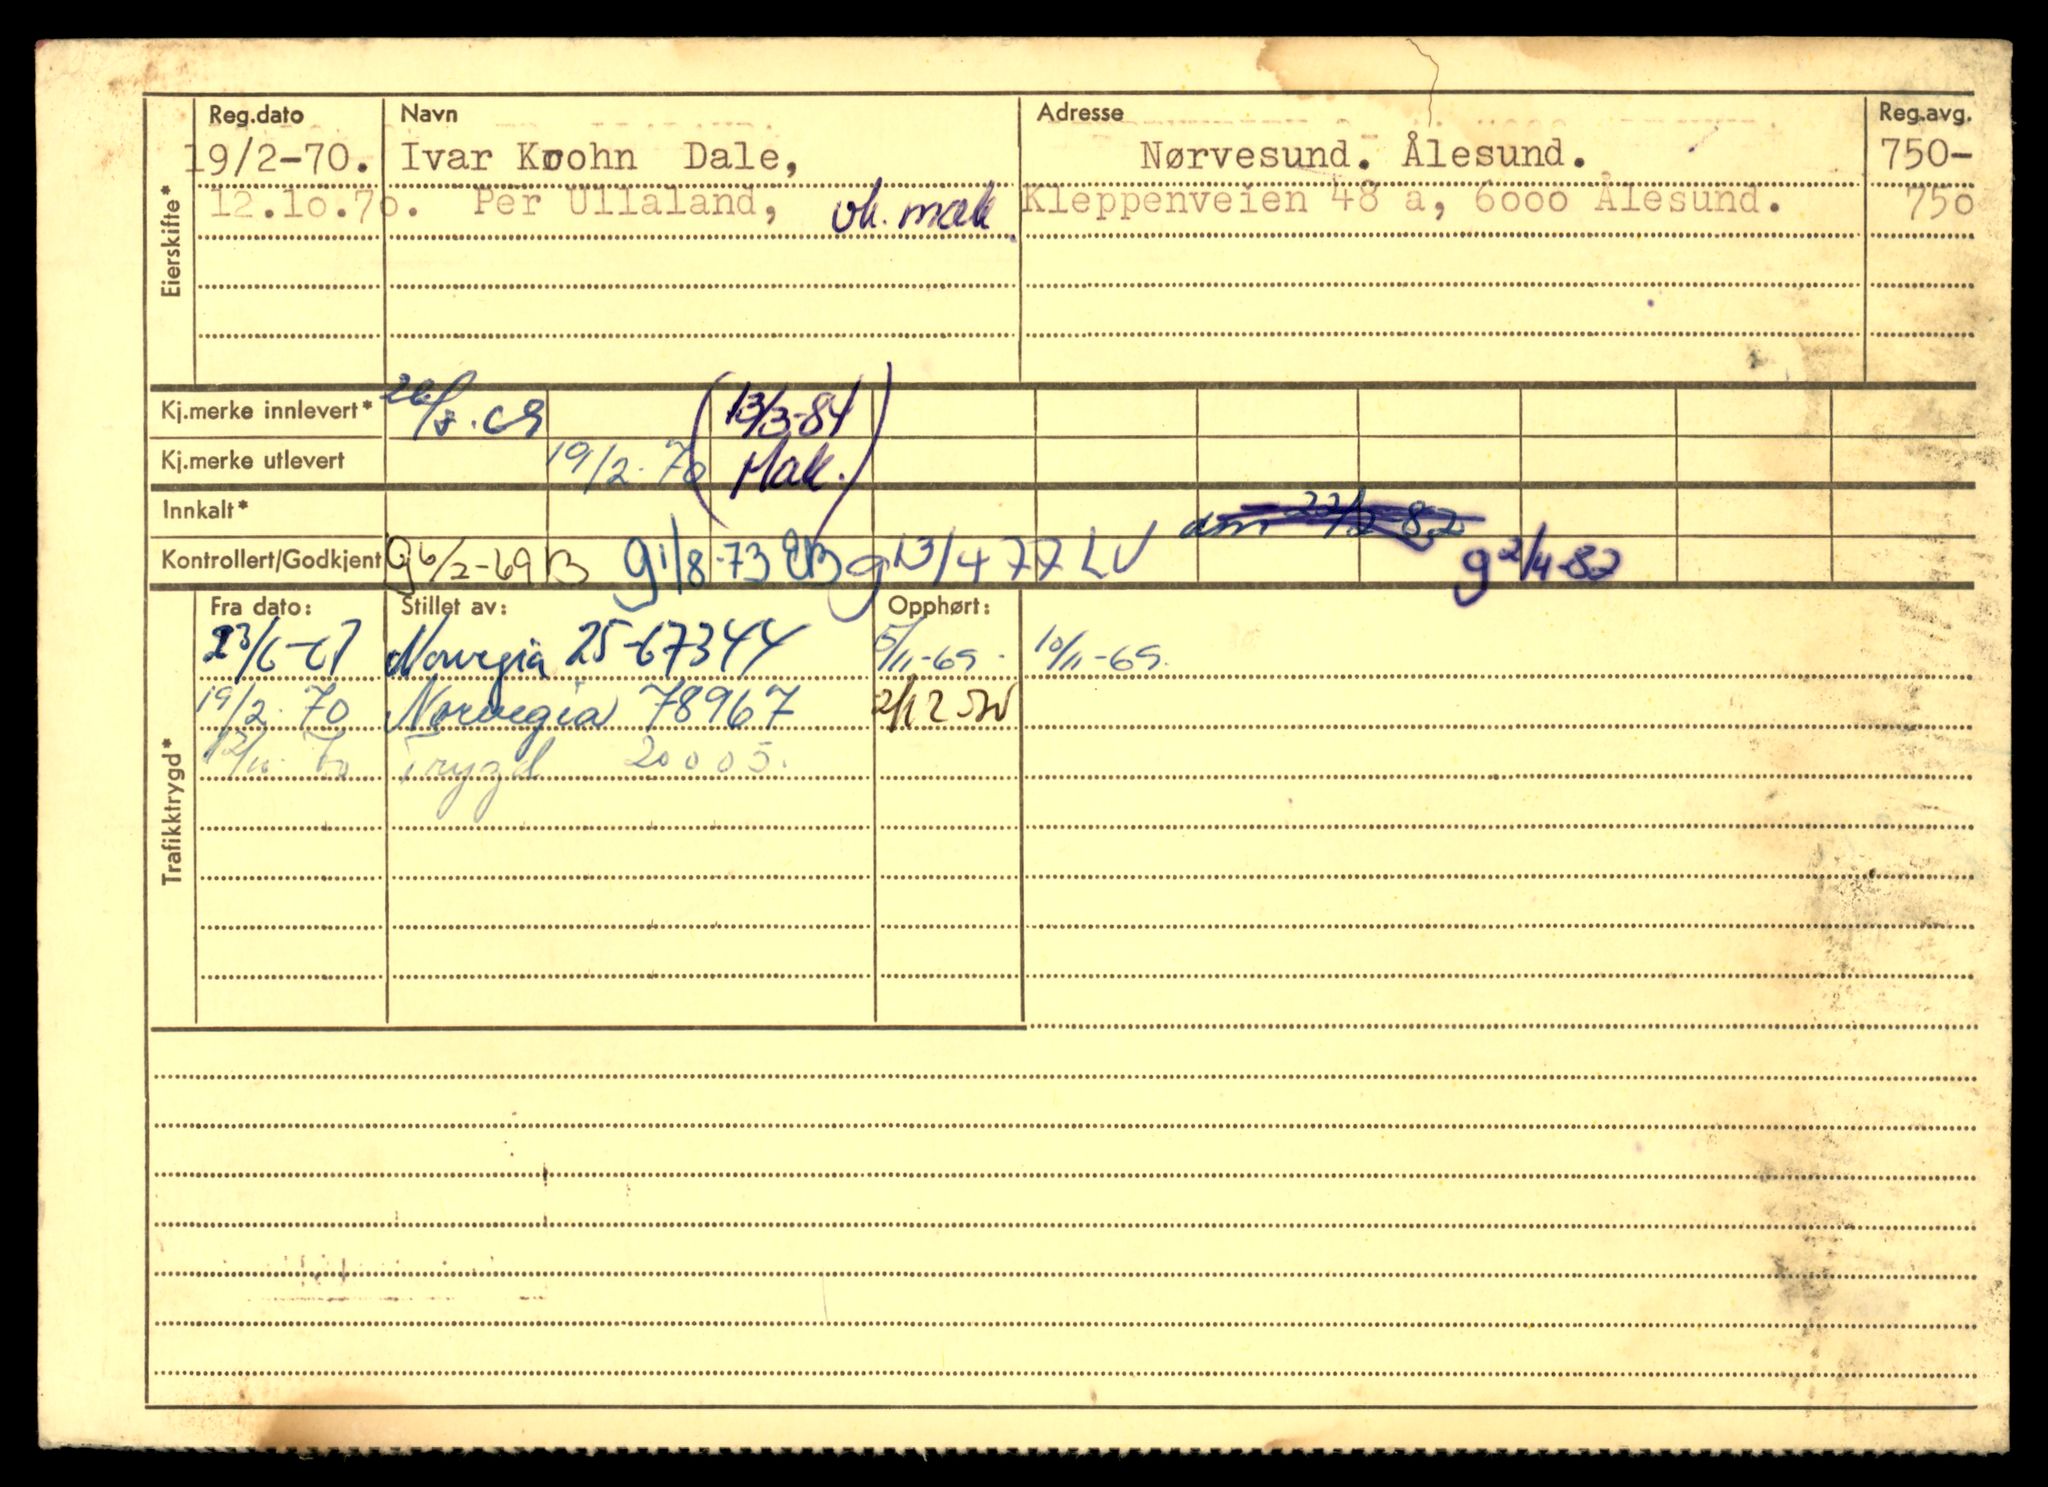 Reg.dato Navn Adresse Reg.avg.
19/2-70. Ivar Kroohn Dale, Nørvesund. Ålesund. 750-
12.10.70. Per Ullaland, vk. mak Kleppenveien 48 a, 6000 Ålesund. 750
Eierskifte*
Kj.merke innlevert* 26/8. 69 (13/3-84
Kj.merke utlevert 19/2.70 Mak.)
Innkalt* 22/2 82
Kontrollert/Godkjent g 6/2-69 B g 1/8-73 EB g 13/4 77 LV g 2/4-82
Trafikktrygd*
Fra dato: Stillet av: Opphørt:
23/6-67 Norvegia 25-67344 5/11-69. 10/11-69.
19/2.70 Norvegia 78967
12/10.70 Trygd 20005.